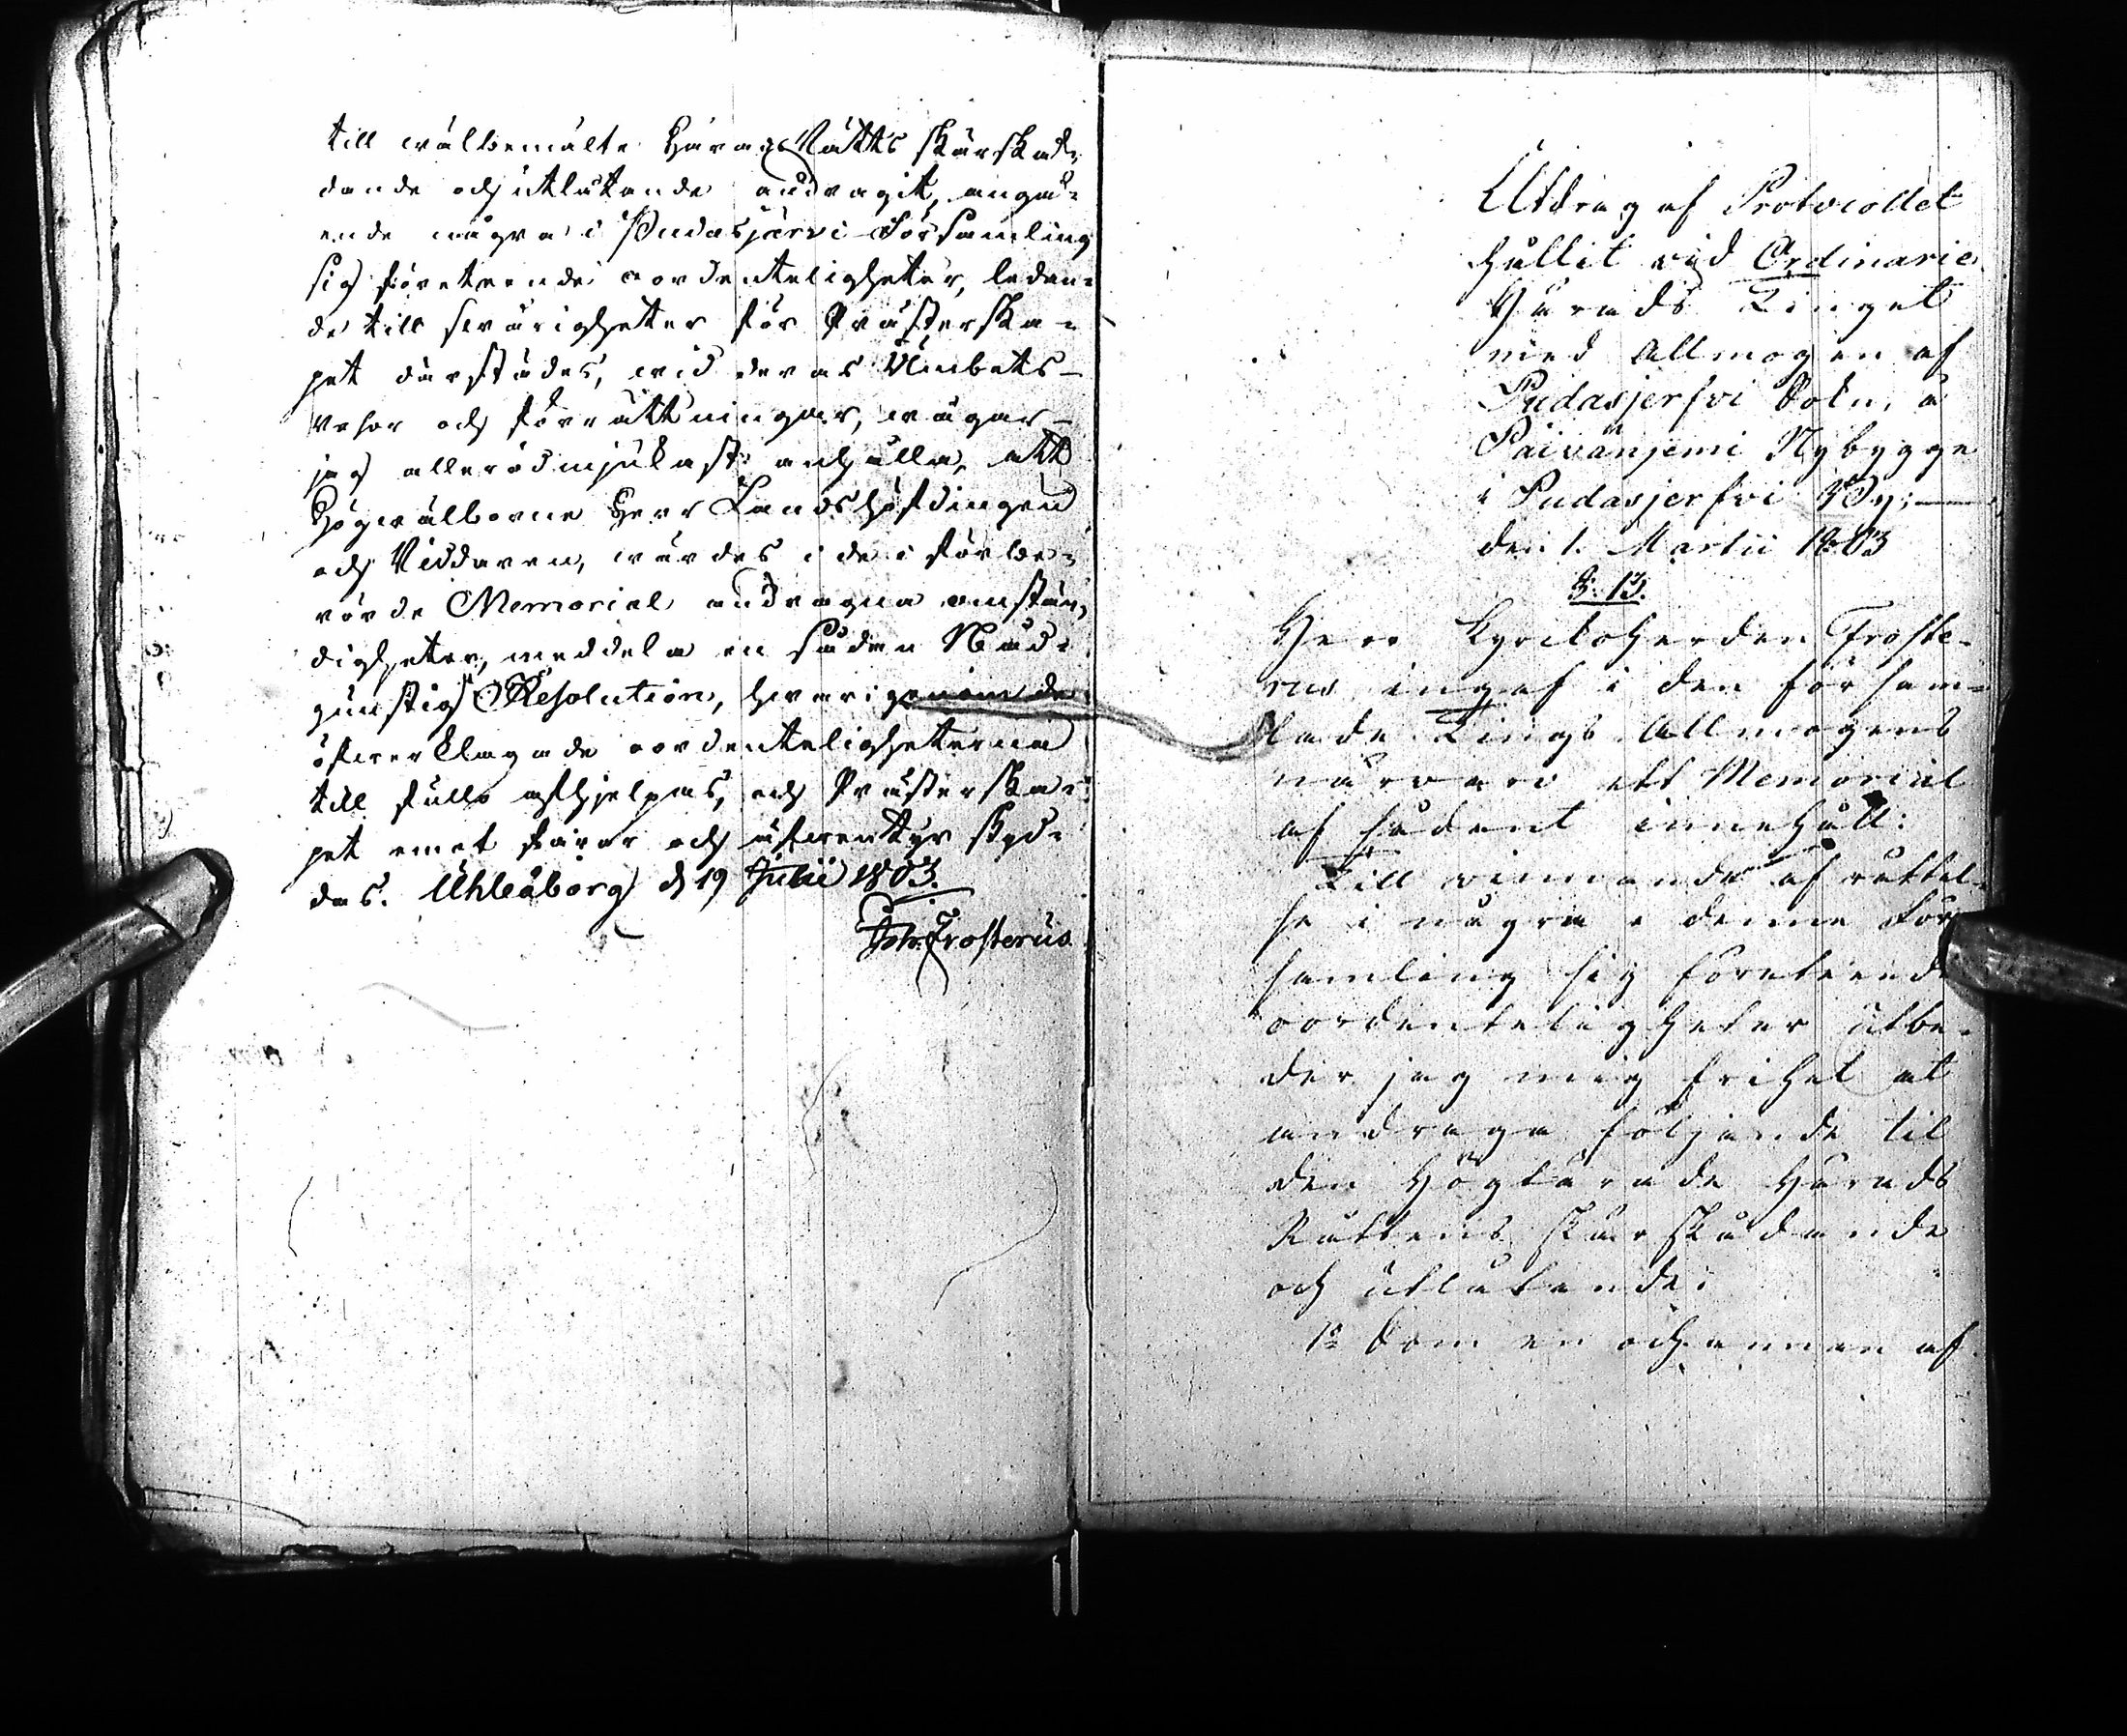 till wälbemälte Härads Rätts skärskå-
dande och utlåtande andragit, angå-
ende några i Pudasjärvi Församling
sig företeende oordenteligheter, ledan-
de till swårigheter för Prästerska-
pet därstädes, wid deras Ämbets-
resor och förrättningar, wågar
jag allerödmjukast anhålla, att
Högwälborne Herr Landshöfdingen
och Riddaren, wärdes i de i förbe-
rörde Memorial andragna omstän-
digheter, meddela en sådan Nåd-
gunstig Resolution, hwarigenom de
öfwerklagade oordenteligheterna
till fullo afhjelpas, och Prästerska-
pet emot faror och äfwentyr skyd-
das. Uhleåborg d 19 Julii 1803.
Joh. Frosterus
Utdrag af Protocollet
hållit vid Ordinarie
Härads Tinget
med Allmogen af
Pudasjerfvi Sokn, å
Päivänjemi Nybygge
i Pudasjerfvi By;
den 1. Martii 1803
§. 13.
Herr Kyrckoherden Froste-
rus ingaf i den försam-
lade Tings Allmogens
närvaro ett Memorial
af sådant innehåll:
Till vinnande af rättel-
se i några i denne För
samling sig företeende
oordenteligheter utbe-
der jag mig frihet at
andraga följande til
den Högtärade Härads
Rättens skärskådande
och utlåtande:
1o Som en och annan af